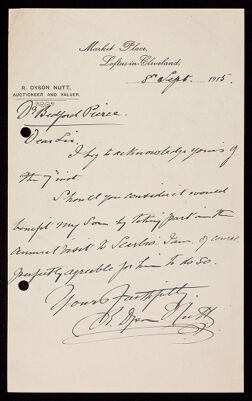 Market Place,
Loftus-in-Cleveland,
8th Sept. 1915
R. DYSON NUTT,
AUCTIONEER AND VALUER.
Dr Bedford Pierce.
Dear Sir
I beg to acknowledge yours of
the 7 inst.
Should you consider it would
benefit my Son by taking part in the
annual visit to Scarbro. I am, of course
perfectly agreeable for him to do so.
Yours Faithfully.
R. Dyson Nutt